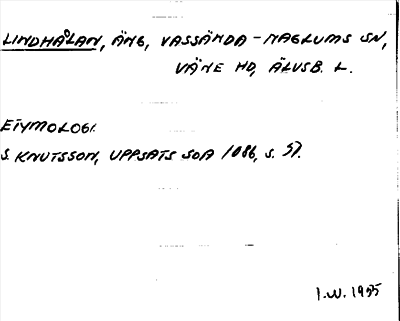 LINDHÅLAN, ÄNG, VASSÄNDA-NAGLUMS SN,
VÄNE HD, ÄLVSB. L.
ETYMOLOGI.
S. KNUTSSON, UPPSATS SOA 1086, S. 57.
I.W. 1955